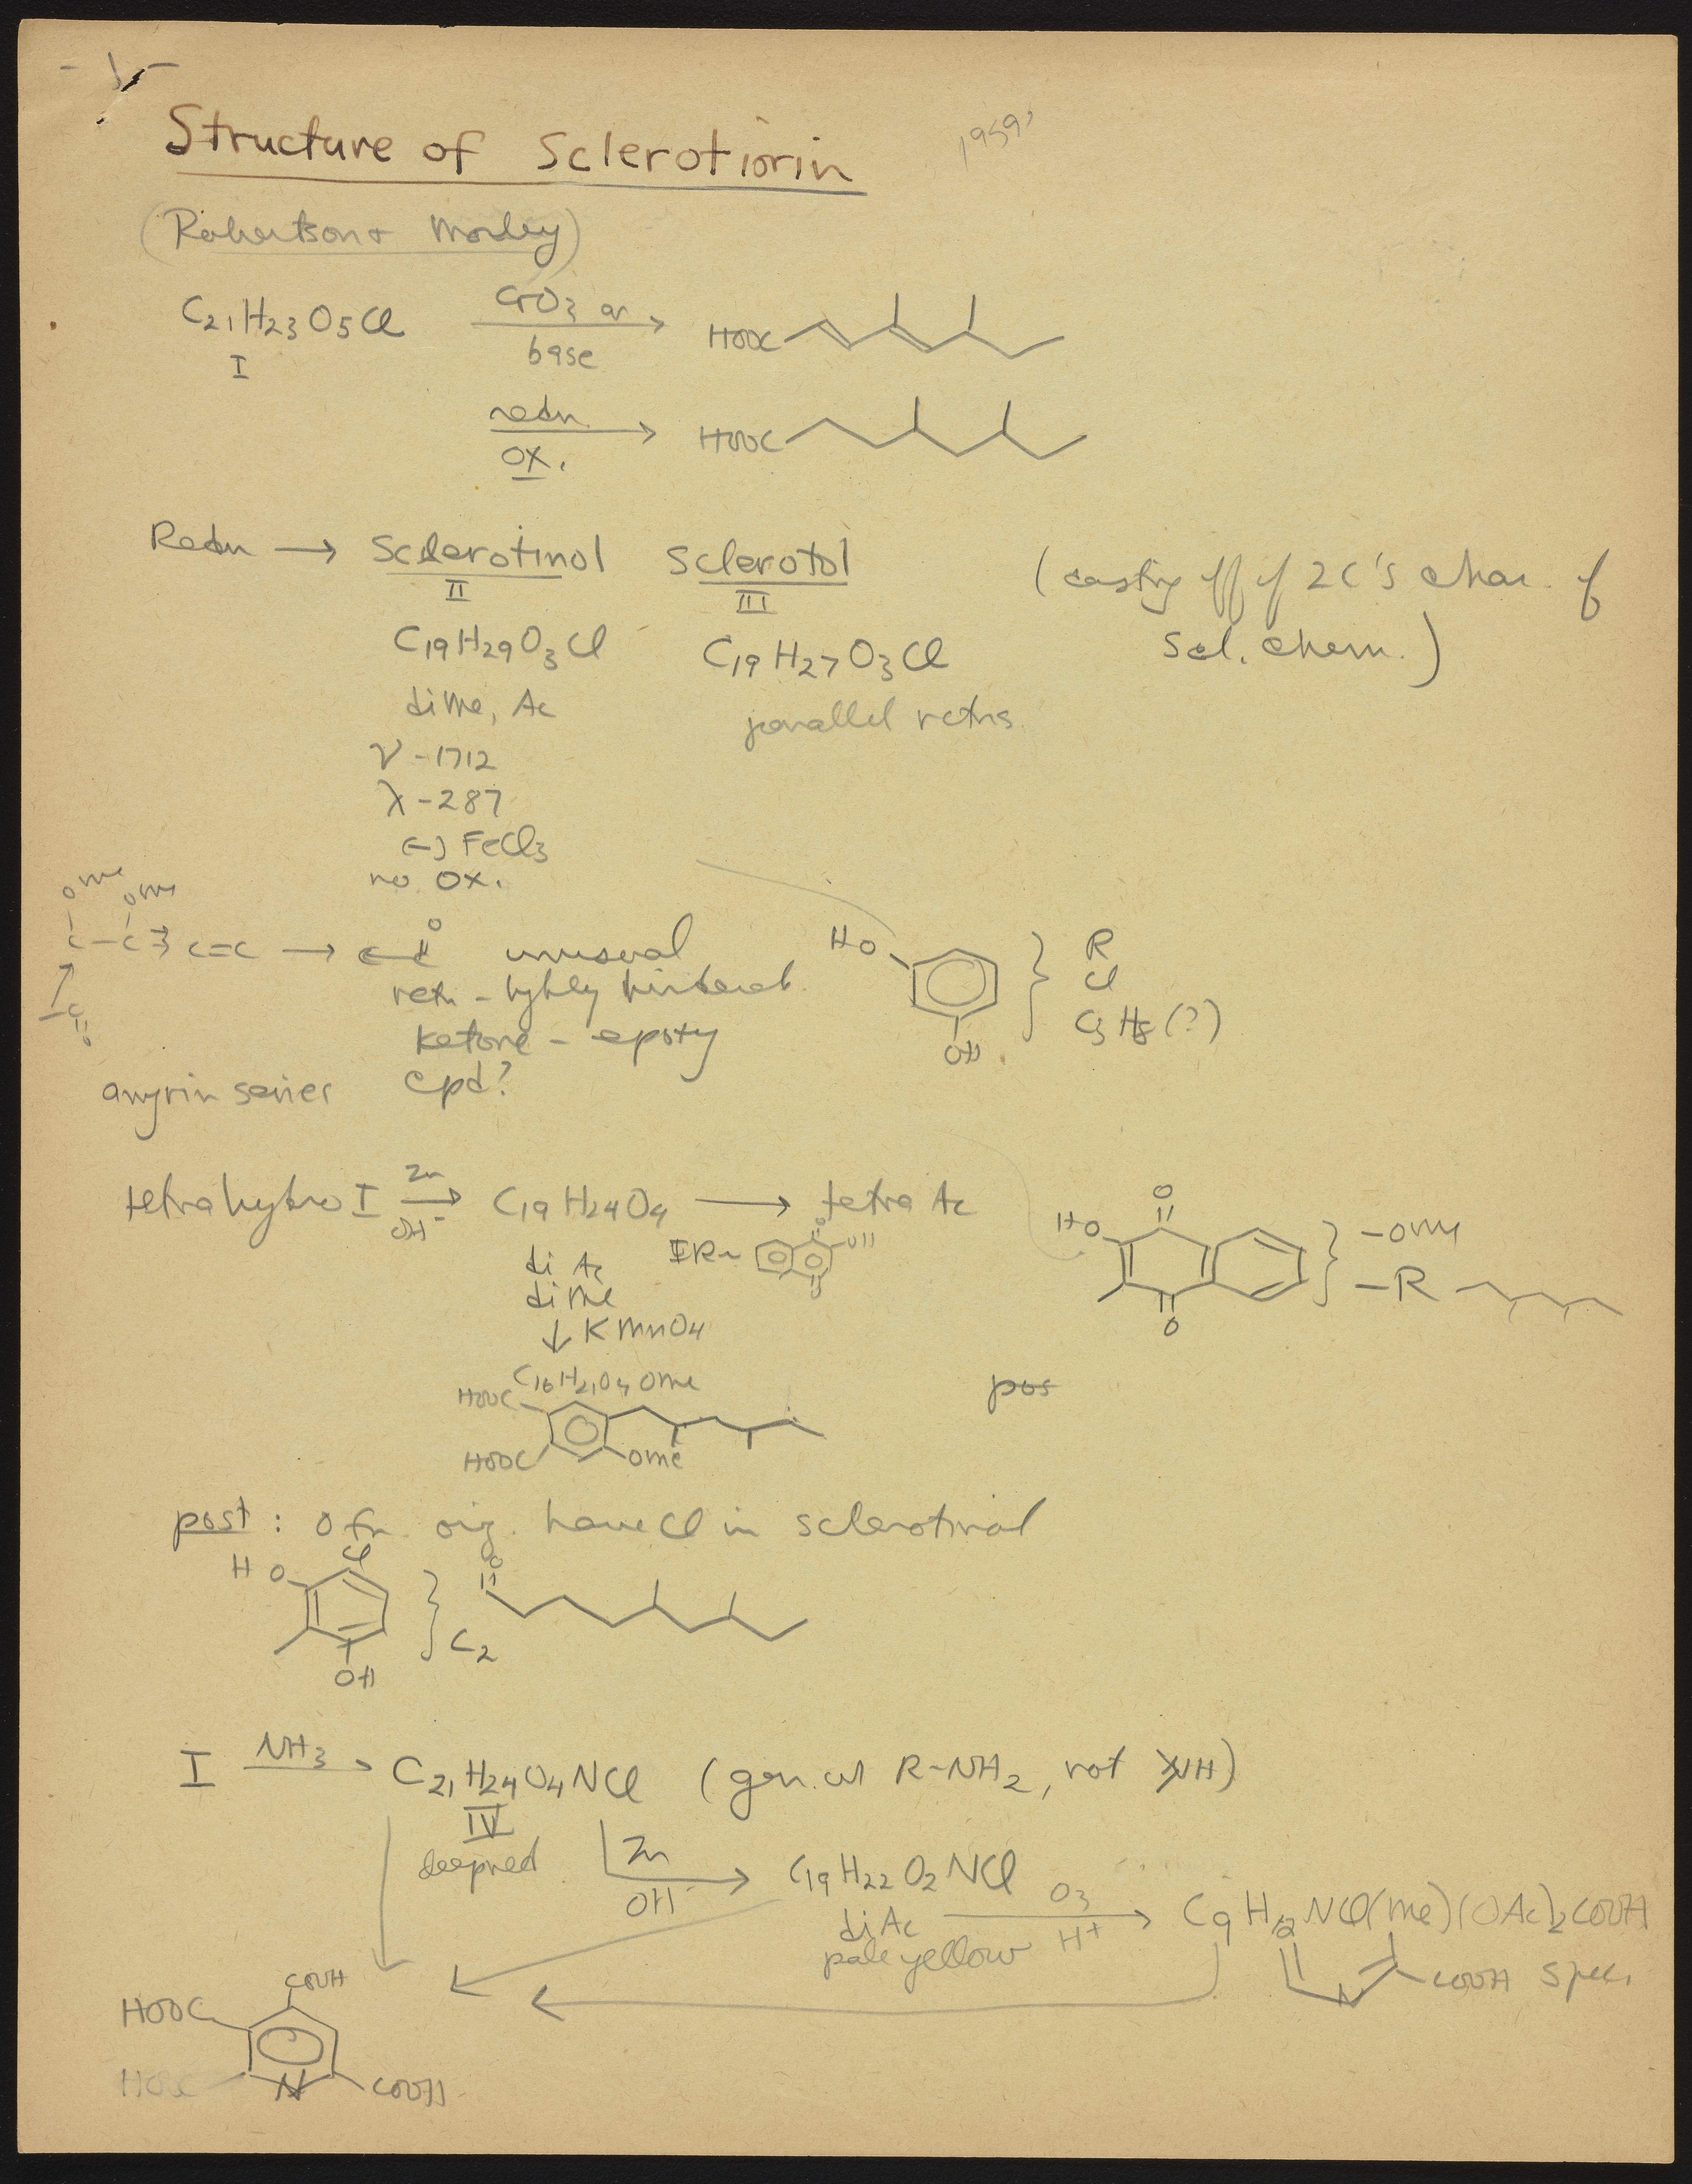 - 1 -
Structure of Sclerotiorin
1959?
(Robertson + Morley)
C21H23O5Cl CrO3 or base → HOOC
I
redn ox. → HOOC
Redn → Sclerotinol Sclerotol (casting off of 2C's char. of
II III
scl. chem.)
C19H29O3Cl C19H27O3Cl
diMe, Ac parallel rctns
ν - 1712
λ - 287
(-) FeCl3
no ox.
OMe OMe
C-C C=C → C-C O unusual
rctn - highly hindered
ketone - epoxy
cpd?
C O
HO OH } R Cl C3H8(?)
amyrin series
tetrahydro I Zn OH- → C19H24O4 → tetra Ac
di Ac
diMe
↓ KMnO4
IR ~ O OH O
HO O O } -OMe -R
C16H21O4 OMe
HOOC HOOC OMe
pos
post: O fn. orig. have Cl in sclerotinol
HO Cl OH } C2 O
I NH3 → C21H24O4NCl (gen. w/ R-NH2, not NH)
IV
deepred
Zn OH- → C19H22O2NCl O3 H+ → C9H12NCl(Me)(OAc)2COOH
diAc
pale yellow
N COOH spec.
COOH
HOOC
HOOC N COOH